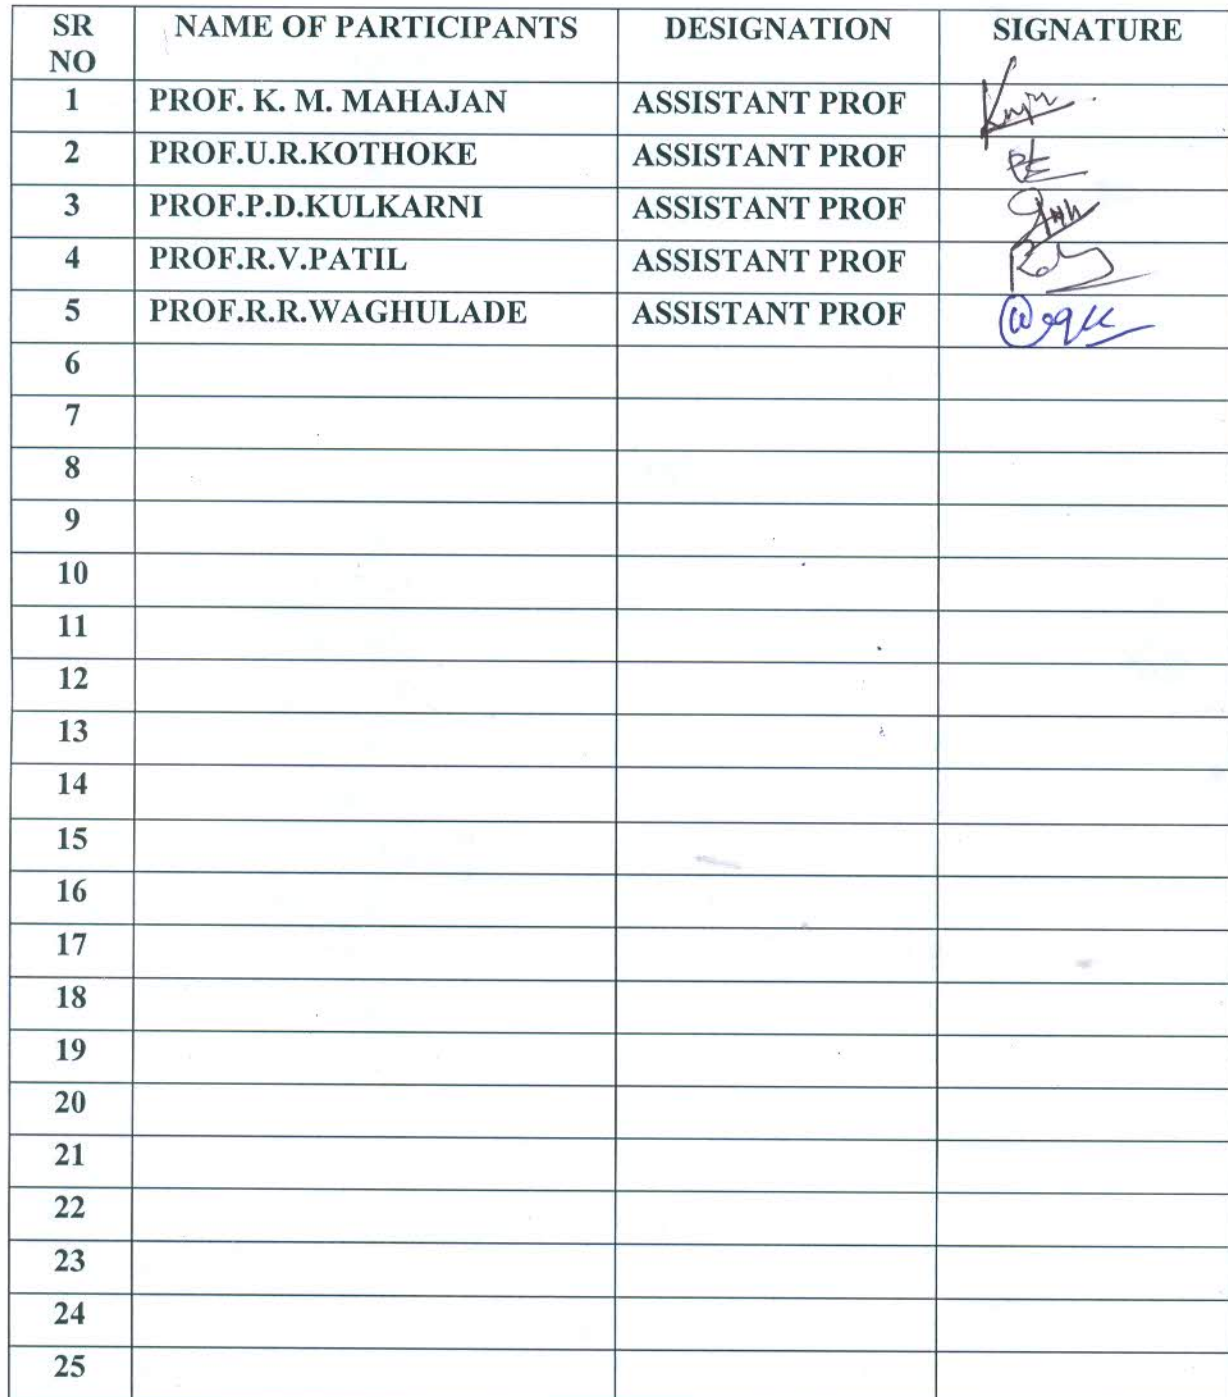 SR NO NAME OF PARTICIPANTS DESIGNATION SIGNATURE
1 PROF. K. M. MAHAJAN ASSISTANT PROF
2 PROF.U.R.KOTHOKE ASSISTANT PROF
3 PROF.P.D.KULKARNI ASSISTANT PROF
4 PROF.R.V.PATIL ASSISTANT PROF
5 PROF.R.R.WAGHULADE ASSISTANT PROF
6
7
8
9
10
11
12
13
14
15
16
17
18
19
20
21
22
23
24
25